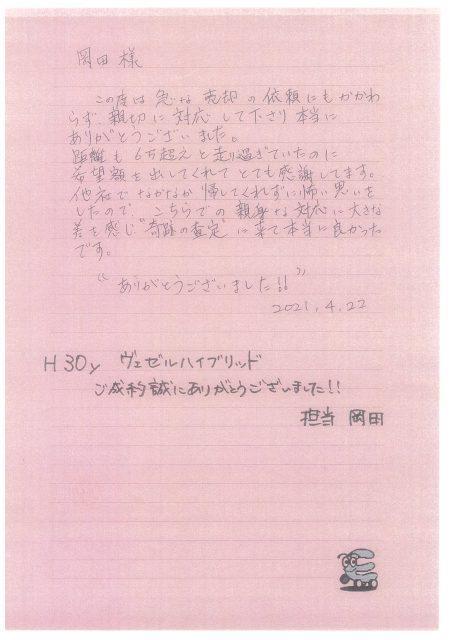 岡田 様
この度は 急な 売却 の 依頼 にも かかわ
らず、親切 に 対応 して 下さり 本当に
ありがとうございました。
距離 も 6万超え と 走り過ぎていたのに
希望額 を 出してくれて とても 感謝 してます。
他社で なかなか 帰してくれずに 怖い 思いを
したので、こちらでの 親身な 対応 に 大きな
差を 感じ "奇跡の査定" に 来て 本当に 良かった
です。
"ありがとうございました!!"
2021.4.22
H30y ヴェゼルハイブリッド
ご成約誠にありがとうございました!!
担当 岡田